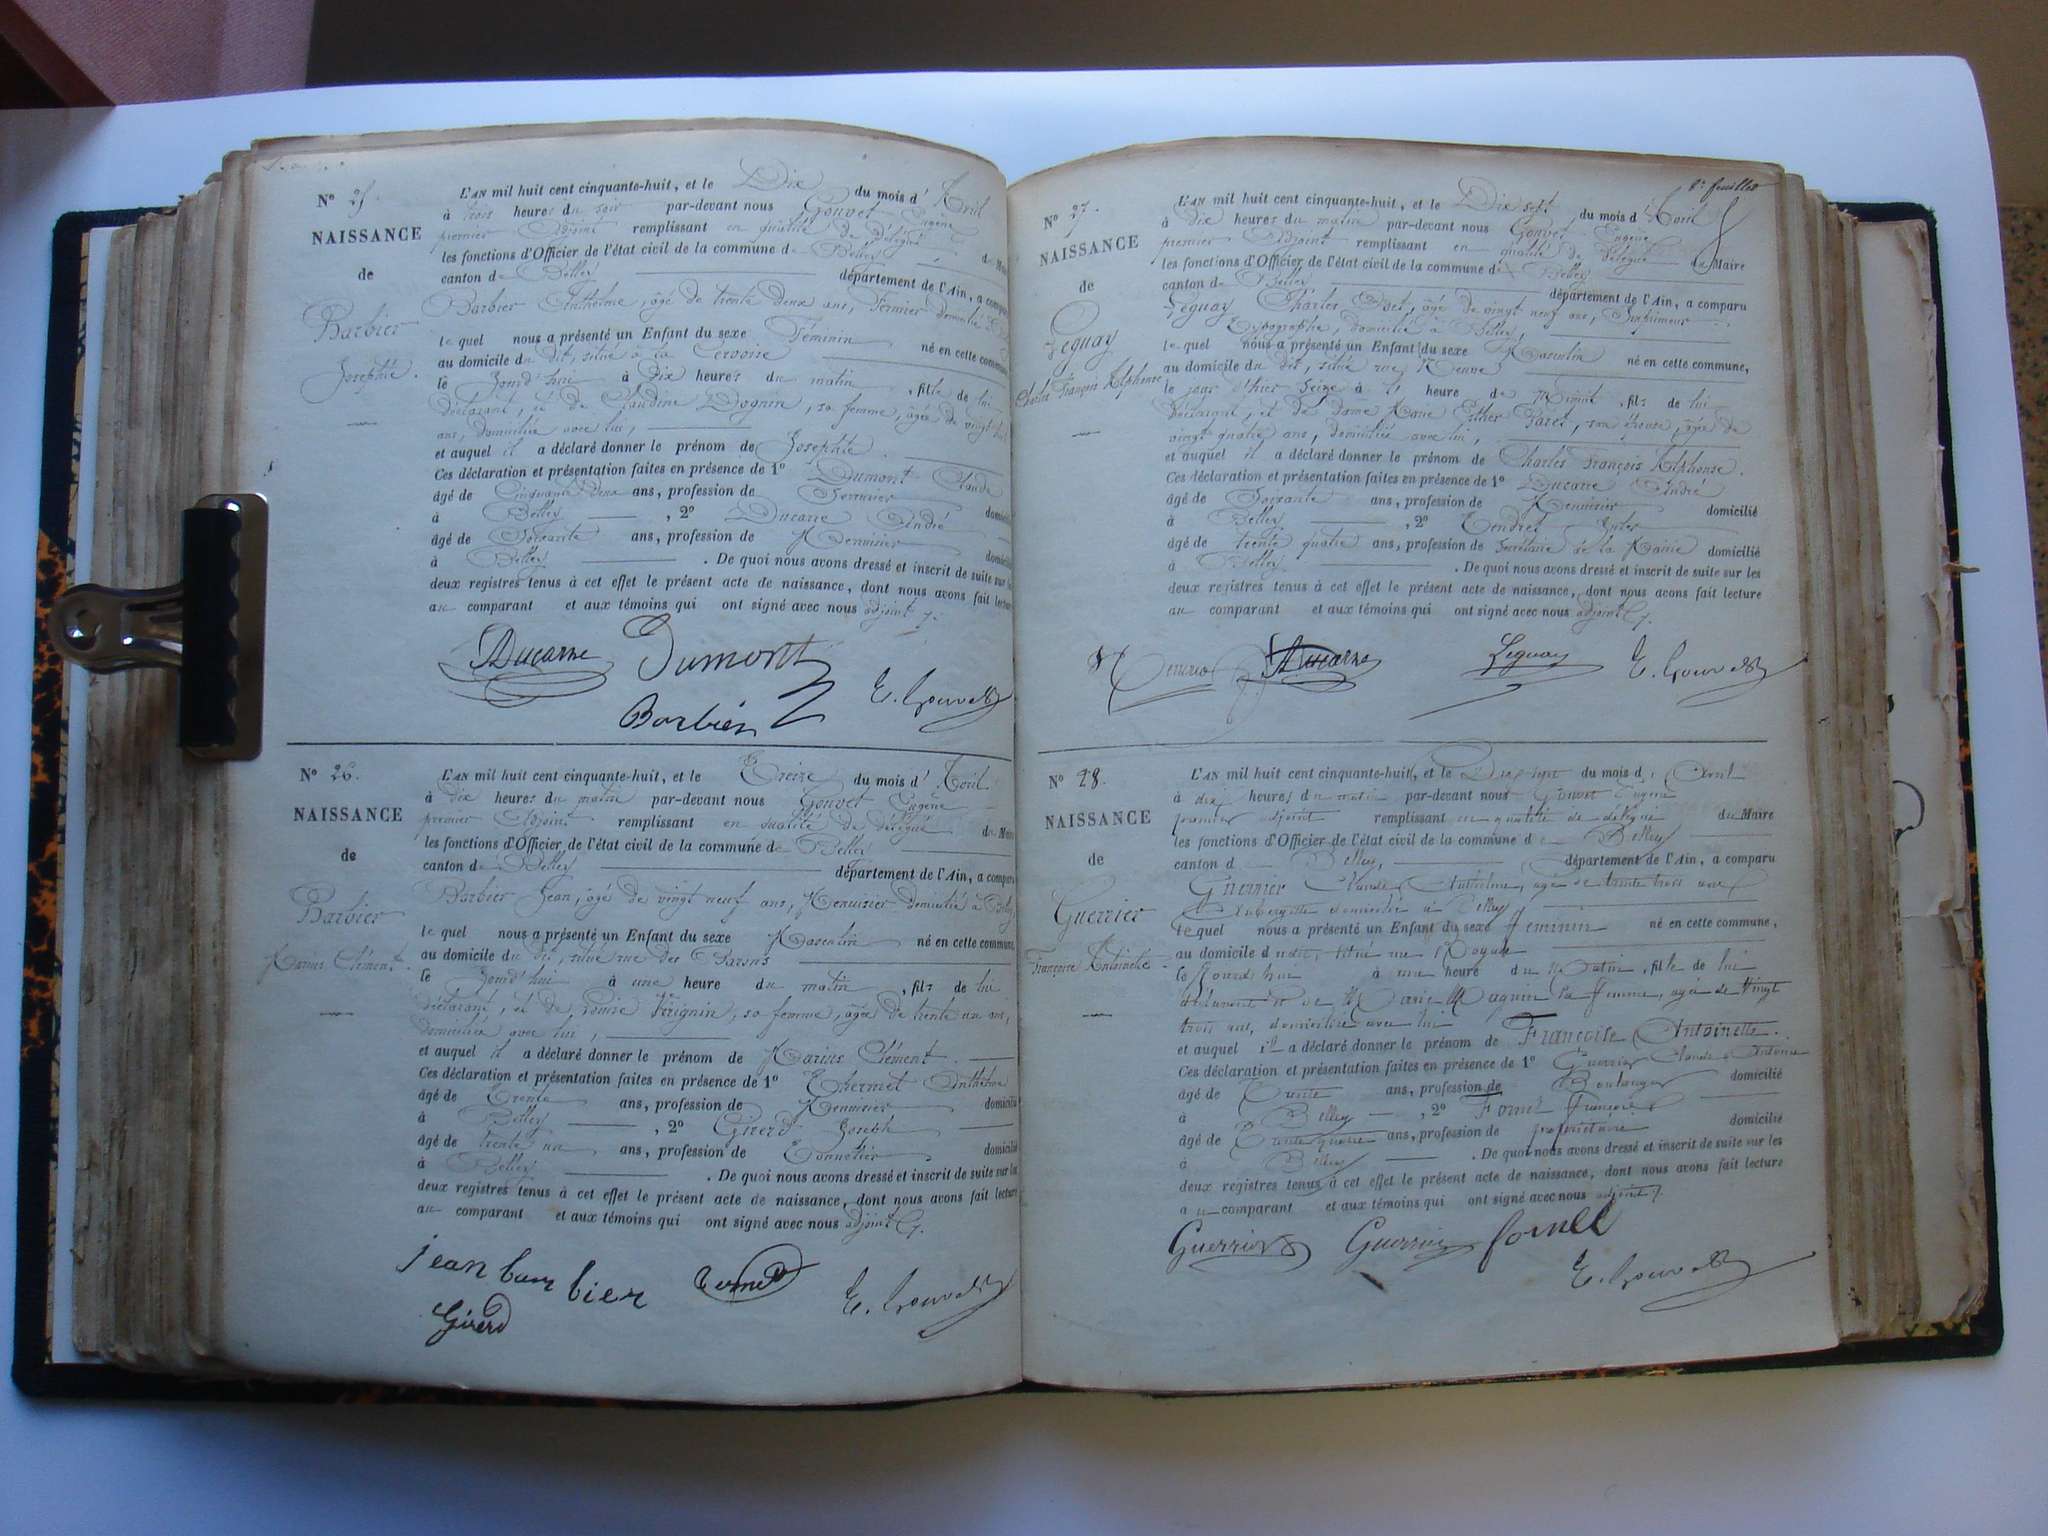 N° 25.
NAISSANCE
de
Barbier
Josephte.
L'AN mil huit cent cinquante-huit, et le Dix du mois d'Avril
à trois heures du soir par-devant nous Gouvet Eugène
premier Adjoint remplissant en qualité de délégué du Maire
les fonctions d'Officier de l'état civil de la commune de Belley
canton de Belley département de l'Ain, a comparu
Barbier Anthelme, âgé de trente deux ans, Fermier domicilié à
lequel nous a présenté un Enfant du sexe Féminin né en cette commune
au domicile du dit, situé à la
le Jourd'hui à Dix heures du matin, fille de lui
déclarant, et de Claudine Dognin, sa femme, âgée de vingt
ans, domiciliée avec lui,
et auquel il a déclaré donner le prénom de Josephte.
Ces déclaration et présentation faites en présence de 1° Dumont Claude
âgé de Cinquante deux ans, profession de Serrurier domicilié
à Belley, 2° Ducarre André
âgé de Soixante ans, profession de Menuisier domicilié
à Belley. De quoi nous avons dressé et inscrit de suite sur les
deux registres tenus à cet effet le présent acte de naissance, dont nous avons fait lecture
au comparant et aux témoins qui ont signé avec nous adjoint
Ducarre Dumont
Barbier E. Gouvet
N° 26.
NAISSANCE
de
Barbier
Marius Clément.
L'AN mil huit cent cinquante-huit, et le Treize du mois d'Avril.
à Dix heures du matin par-devant nous Gouvet Eugène
premier Adjoint remplissant en qualité de délégué du Maire
les fonctions d'Officier de l'état civil de la commune de Belley
canton de Belley département de l'Ain, a comparu
Barbier Jean, âgé de vingt neuf ans, Menuisier domicilié à Belley
lequel nous a présenté un Enfant du sexe Masculin né en cette commune,
au domicile du dit, situé rue des Barons
le Jourd'hui à une heure du matin, fils de lui
déclarant, et de Louise Férignin, sa femme, âgée de trente un ans,
domiciliée avec lui,
et auquel il a déclaré donner le prénom de Marius Clément.
Ces déclaration et présentation faites en présence de 1° Thermet Anthelme
âgé de Trente ans, profession de Menuisier domicilié
à Belley, 2° Girerd Joseph
âgé de trente un ans, profession de Tonnelier domicilié
à Belley. De quoi nous avons dressé et inscrit de suite sur les
deux registres tenus à cet effet le présent acte de naissance, dont nous avons fait lecture
au comparant et aux témoins qui ont signé avec nous adjoint
jean barbier E. Gouvet
Girerd
8e feuillet
N° 27.
NAISSANCE
de
Leguay
Charles François Alphonse
L'AN mil huit cent cinquante-huit, et le Dix sept du mois d'Avril
à dix heures du matin par-devant nous Gouvet Eugène
premier Adjoint remplissant en qualité de délégué du Maire
les fonctions d'Officier de l'état civil de la commune de Belley
canton de Belley département de l'Ain, a comparu
Leguay Charles, âgé de vingt neuf ans, Imprimeur
Typographe, domicilié à Belley,
lequel nous a présenté un Enfant du sexe Masculin né en cette commune,
au domicile du dit, situé rue Neuve
le jour d'hier Seize à heure de Minuit, fils de lui
déclarant, et de dame Marie Esther Paret, son épouse, âgée de
vingt quatre ans, domiciliée avec lui,
et auquel il a déclaré donner le prénom de Charles François Alphonse.
Ces déclaration et présentation faites en présence de 1° Ducarre André
âgé de Soixante ans, profession de Menuisier domicilié
à Belley, 2° Tendret Jules
âgé de trente quatre ans, profession de Secrétaire de la Mairie domicilié
à Belley. De quoi nous avons dressé et inscrit de suite sur les
deux registres tenus à cet effet le présent acte de naissance, dont nous avons fait lecture
au comparant et aux témoins qui ont signé avec nous adjoint
Ducarre Leguay E. Gouvet
N° 28.
NAISSANCE
de
Guerrier
Françoise Antoinette.
L'AN mil huit cent cinquante-huit, et le Dix-sept du mois d'Avril
à dix heures du matin par-devant nous Gouvet Eugène
premier adjoint remplissant en qualité de délégué du Maire
les fonctions d'Officier de l'état civil de la commune de Belley
canton d Belley, département de l'Ain, a comparu
Guerrier Claude Anthelme, âgé de trente trois ans
Aubergiste domicilié à Belley
lequel nous a présenté un Enfant du sexe Féminin né en cette commune,
au domicile du dit, situé rue Royale
le Jourd'hui à une heure du Matin, fille de lui
déclarant et de Marie Maguin sa femme, âgée de Vingt
trois ans, domiciliée avec lui
et auquel il a déclaré donner le prénom de Françoise Antoinette.
Ces déclaration et présentation faites en présence de 1° Guerrier Claude Antoine
âgé de Trente ans, profession de Boulanger domicilié
à Belley, 2° Fornel François
âgé de Trente quatre ans, profession de propriétaire domicilié
à Belley. De quoi nous avons dressé et inscrit de suite sur les
deux registres tenus à cet effet le présent acte de naissance, dont nous avons fait lecture
au comparant et aux témoins qui ont signé avec nous adjoint
Guerrier Guerrier fornel
E. Gouvet